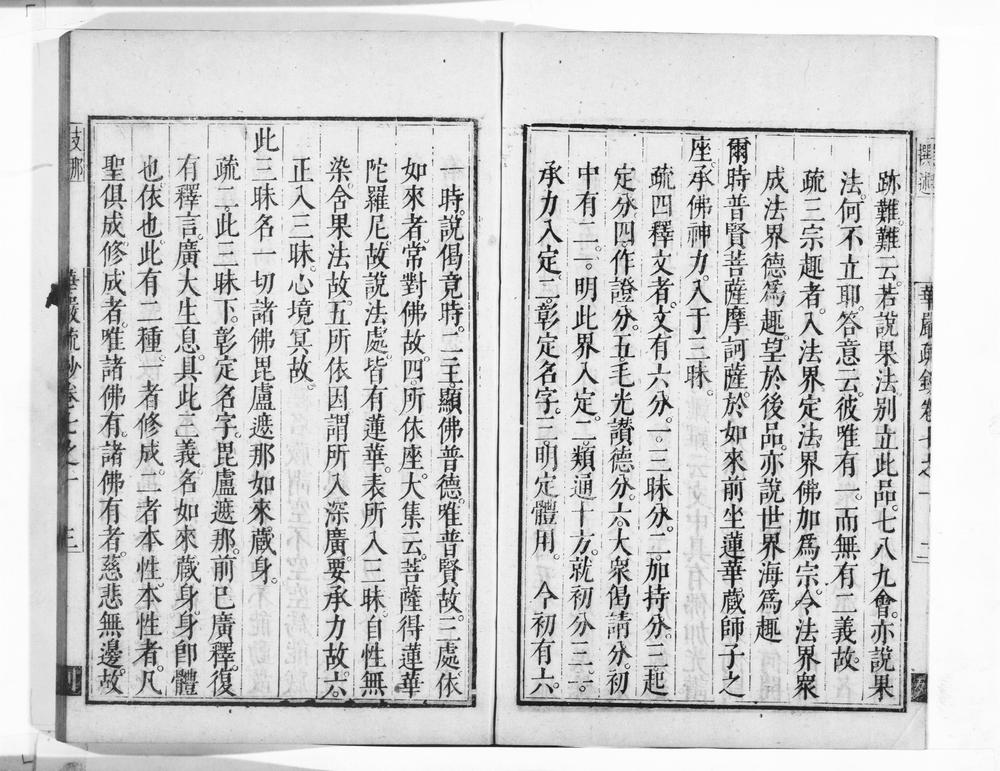 跡難難云。若說果法別立此品。七八九會。亦說果
法。何不立耶。答意云。彼唯有一。而無有二義故。
疏三宗趣者。入法界定。法界佛加爲宗。令法界衆
成法界德爲趣。望於後品。亦說世界海爲趣
爾時普賢菩薩摩訶薩。於如來前坐蓮華藏師子之
座。承佛神力。入于三昧。
疏四釋文者。文有六分。一。三昧分。二加持分。三起
定分。四作證分。五毛光讃德分。六大衆偈請分。初
中有二。一。明此界入定。二。類通十方。就初分三。一。
承力入定。二。彰定名字。三。明定體用。 今初有六。
華嚴疏鈔卷七之一 二
一時。說偈竟時。二主。顯佛普德。唯普賢故。三處依
如來者。常對佛故。四。所依座。大集云。菩薩得蓮華
陀羅尼。故說法處。皆有蓮華。表所入三昧自性無
染。含果法故。五所依因。謂所入深廣。要承力故。六。
正入三昧。心境冥故。
此三昧名一切諸佛毘盧遮那如來。藏身。
疏二此三昧下。彰定名字。毘盧遮那。前已廣釋。復
有釋言。廣大生息。具此三義名如來藏身。身卽體
也。依也。此有二種。一者修成。二者本性。本性者。凡
聖俱成。修成者。唯諸佛有。諸佛有者。慈悲無邊。故
華嚴疏鈔卷七之一 三